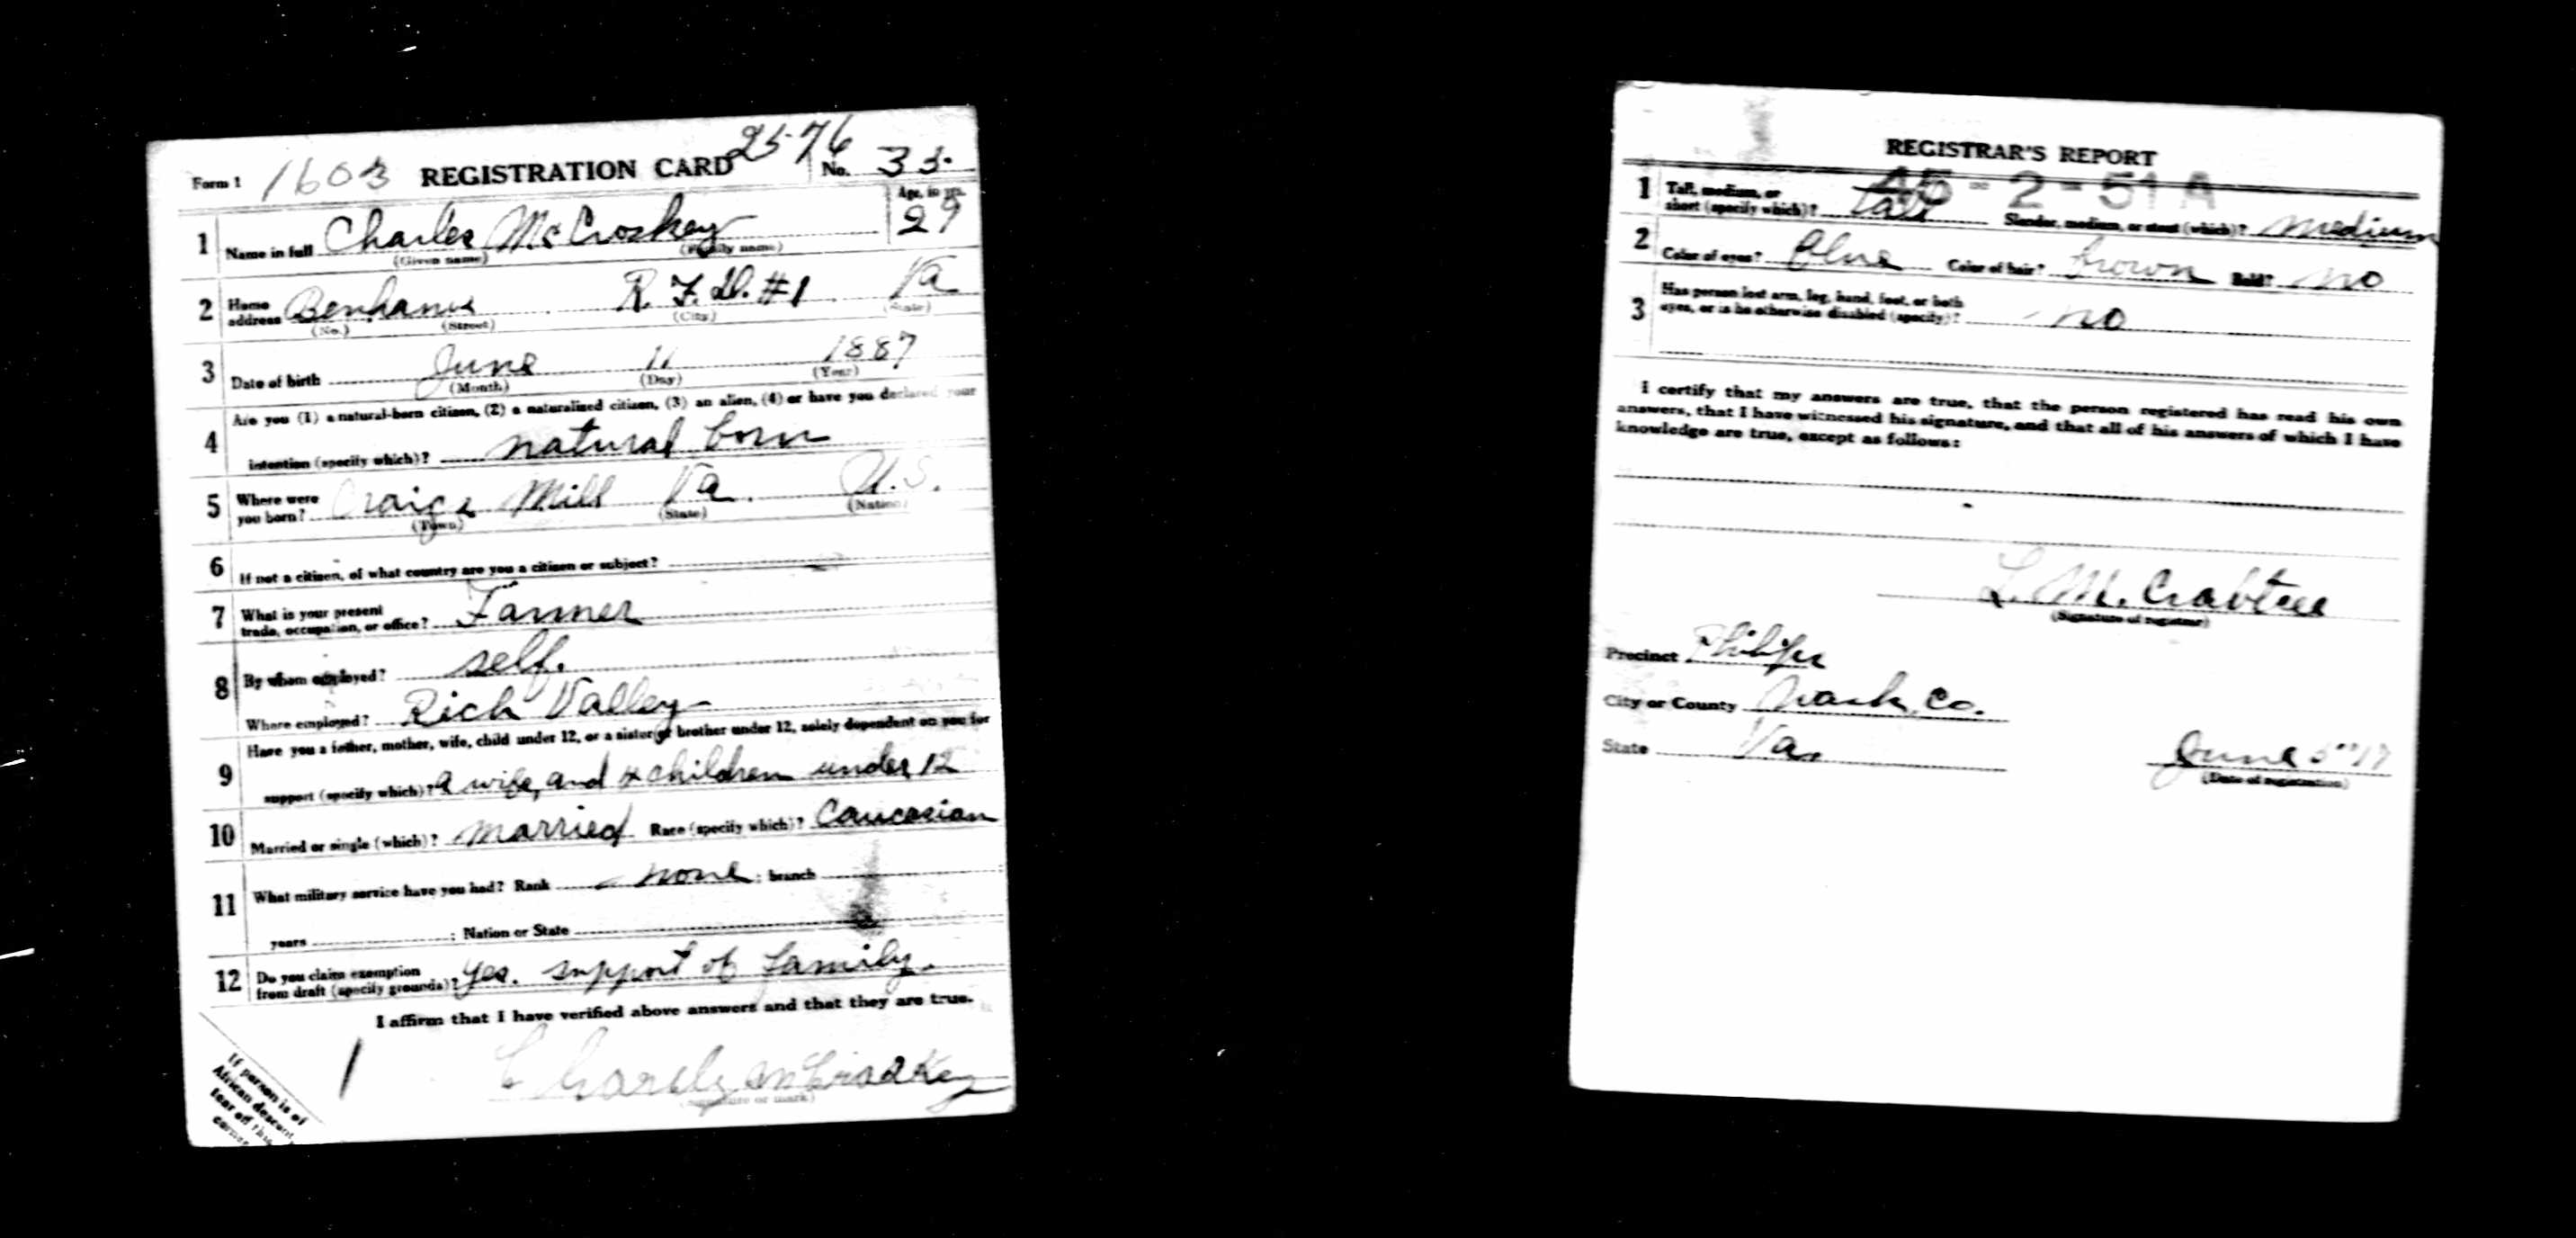 Form 1 1603 REGISTRATION CARD 2576 No. 33
1 Name in full Charles McCroskey Age, in yrs. 29
(Given name) (Family name)
2 Home address Benhams R. F. D. #1 Va
(No.) (Street) (City) (State)
3 Date of birth June 11 1887
(Month) (Day) (Year)
Are you (1) a natural-born citizen, (2) a naturalized citizen, (3) an alien, (4) or have you declared your
4 intention (specify which)? natural born
5 Where were you born? Craigs Mill Va. U.S.
(Town) (State) (Nation)
6 If not a citizen, of what country are you a citizen or subject?
7 What is your present trade, occupation, or office? Farmer
8 By whom employed? self.
Where employed? Rich Valley
Have you a father, mother, wife, child under 12, or a sister or brother under 12, solely dependent on you for
9 support (specify which)? a wife, and 4 children under 12
10 Married or single (which)? married Race (specify which)? Caucasian
11 What military service have you had? Rank none ; branch
years ; Nation or State
12 Do you claim exemption from draft (specify grounds)? Yes. support of family.
I affirm that I have verified above answers and that they are true.
1 Charely McCroskey
(Signature or mark)
If person is of
African descent,
tear off this
corner
REGISTRAR'S REPORT
45-2-51 A
1 Tall, medium, or short (specify which)? tall Slender, medium, or stout (which)? medium
2 Color of eyes? Blue Color of hair? brown Bald? no
3 Has person lost arm, leg, hand, foot, or both eyes, or is he otherwise disabled (specify)? no
I certify that my answers are true, that the person registered has read his own
answers, that I have witnessed his signature, and that all of his answers of which I have
knowledge are true, except as follows:
L. M. Crabtree
(Signature of registrar)
Precinct Philips
City or County Wash. Co.
State Va. June 5" 17
(Date of registration)